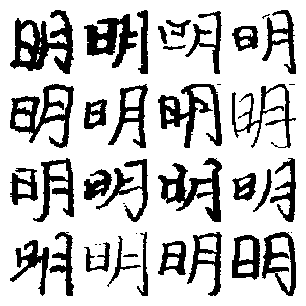 明明明明
明明明明
明明明明
明明明明